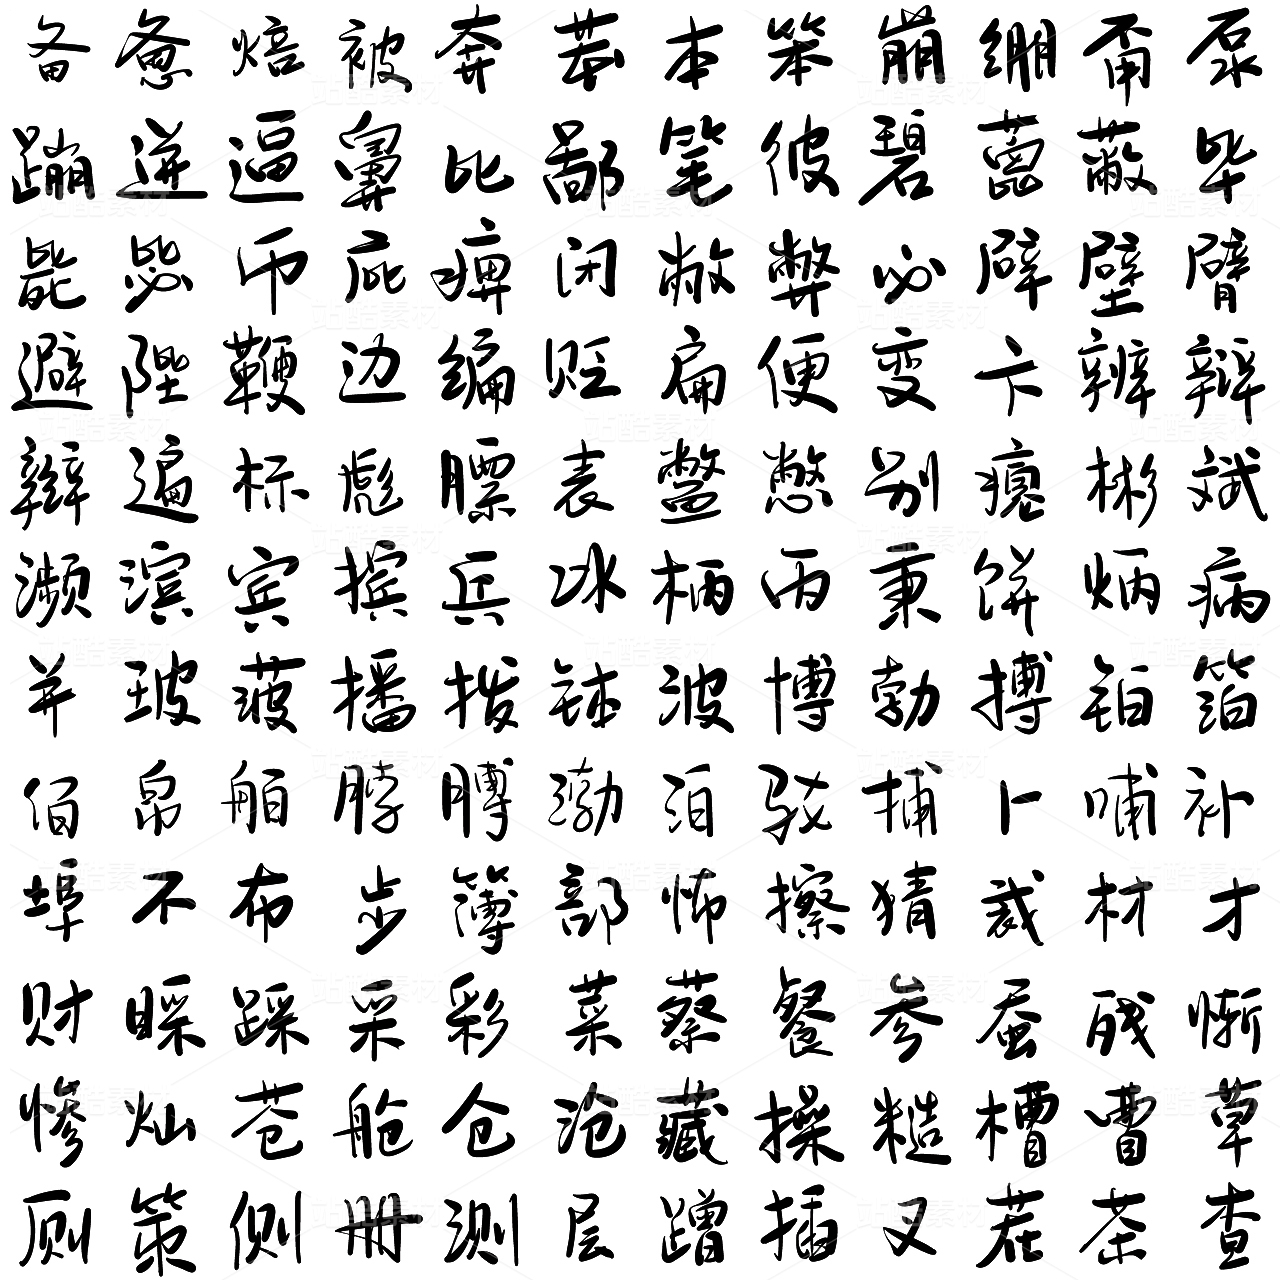 备惫焙被奔苯本笨崩绷甭泵
蹦迸逼鼻比鄙笔彼碧蓖蔽毕
毙毖币庇痹闭敝弊必辟壁臂
避陛鞭边编贬扁便变卞辨辩
辫遍标彪膘表鳖憋别瘪彬斌
濒滨宾摈兵冰柄丙秉饼炳病
并玻菠播拨钵波博勃搏铂箔
伯帛舶脖膊渤泊驳捕卜哺补
埠不布步簿部怖擦猜裁材才
财睬踩采彩菜蔡餐参蚕残惭
惨灿苍舱仓沧藏操糙槽曹草
厕策侧册测层蹭插叉茬茶查